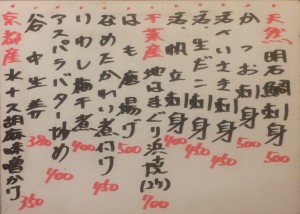 天然 明石鯛刺身 500
かつお刺身 500
活べいさき刺身 450
活、生だこ刺身 400
活、帆立刺身 450
千葉産 地はまぐり浜焼(2ケ) 700
はも唐揚げ 500
なめたかれい煮付け 450
いわし梅干煮 400
アスパラバター炒め 400
谷中生姜 380
京都産 水ナス胡麻味噌かけ 350